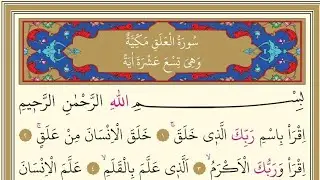 سُورَةُ الْعَلَقِ مَكِّيَّةٌ
وَهِيَ تِسْعَ عَشْرَةَ اٰيَةً
بِسْمِ اللّٰهِ الرَّحْمٰنِ الرَّحٖيمِ
اِقْرَأْ بِاسْمِ رَبِّكَ الَّذٖي خَلَقَۚ ﴿١﴾ خَلَقَ الْاِنْسَانَ مِنْ عَلَقٍۚ ﴿٢﴾
اِقْرَأْ وَرَبُّكَ الْاَكْرَمُۙ ﴿٣﴾ اَلَّذٖي عَلَّمَ بِالْقَلَمِۙ ﴿٤﴾ عَلَّمَ الْاِنْسَانَ